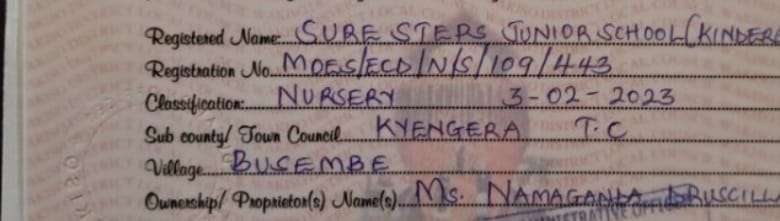 Registered Name SURE STEPS JUNIOR SCHOOL (KINDERG
Registration No. MOES/ECD/N/S/109/443
Classification: NURSERY 3-02-2023
Sub county/ Town Council KYENGERA T.C
Village BUSEMBE
Ownership/ Proprietor(s) Name(s) MS. NAMAGANDA DRUSCILL